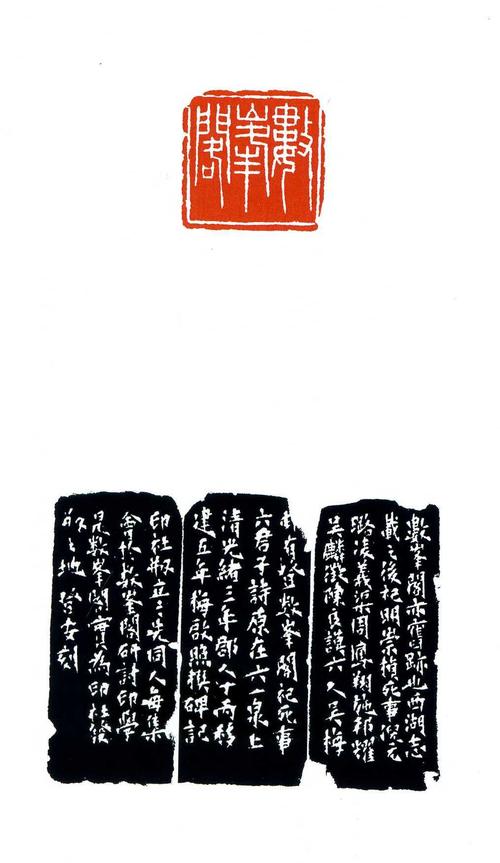 數峯閣
數峯閣亦舊跡也西湖志
載之後祀明崇禎死事倪元
璐凌義渠周鳳翔施邦耀
吳麟徵陳良謨六人吳梅
村有登數峯閣祀死事
六君子詩原在六一泉上
清光緒三年郡人丁丙移
建五年梅啟照撰碑記
印社創立之先同人每集
會於數峯閣研討印學
是數峯閣實為印社發
祥之地 登安刻